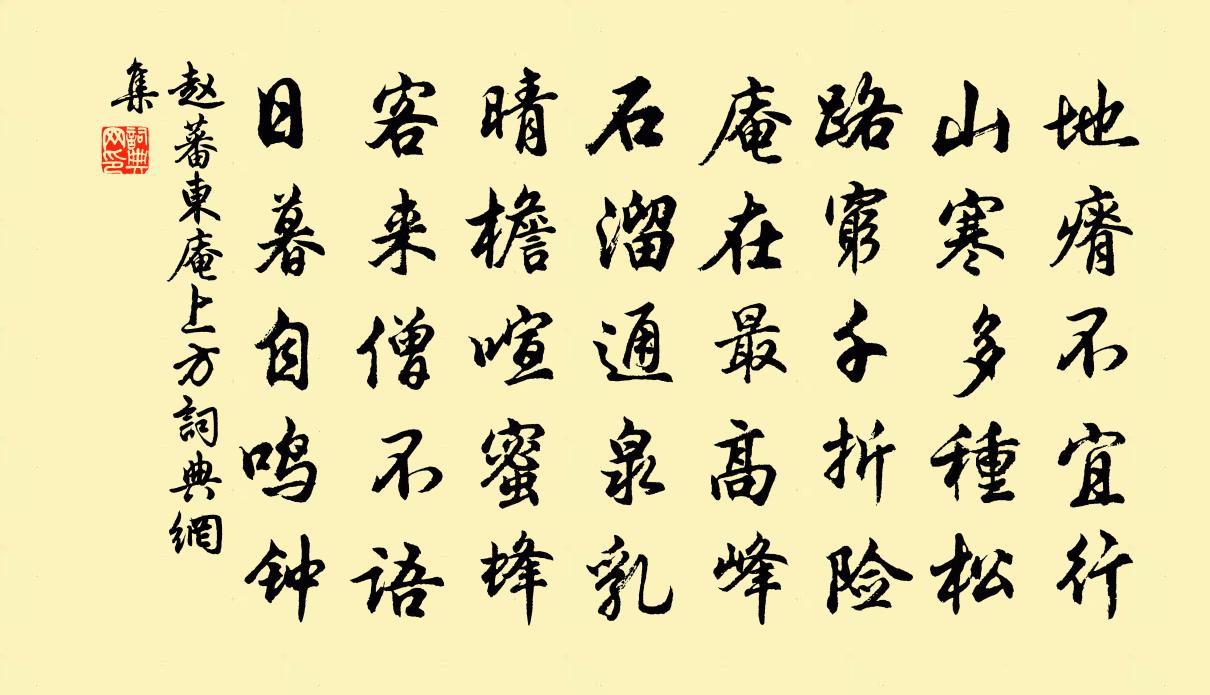 地瘠不宜行
山寒多種松
路窮千折险
庵在最高峰
石溜通泉乳
晴檐喧蜜蜂
客来僧不语
日暮自鸣钟
赵蕃東庵上方詞典網
集
詞典
网印